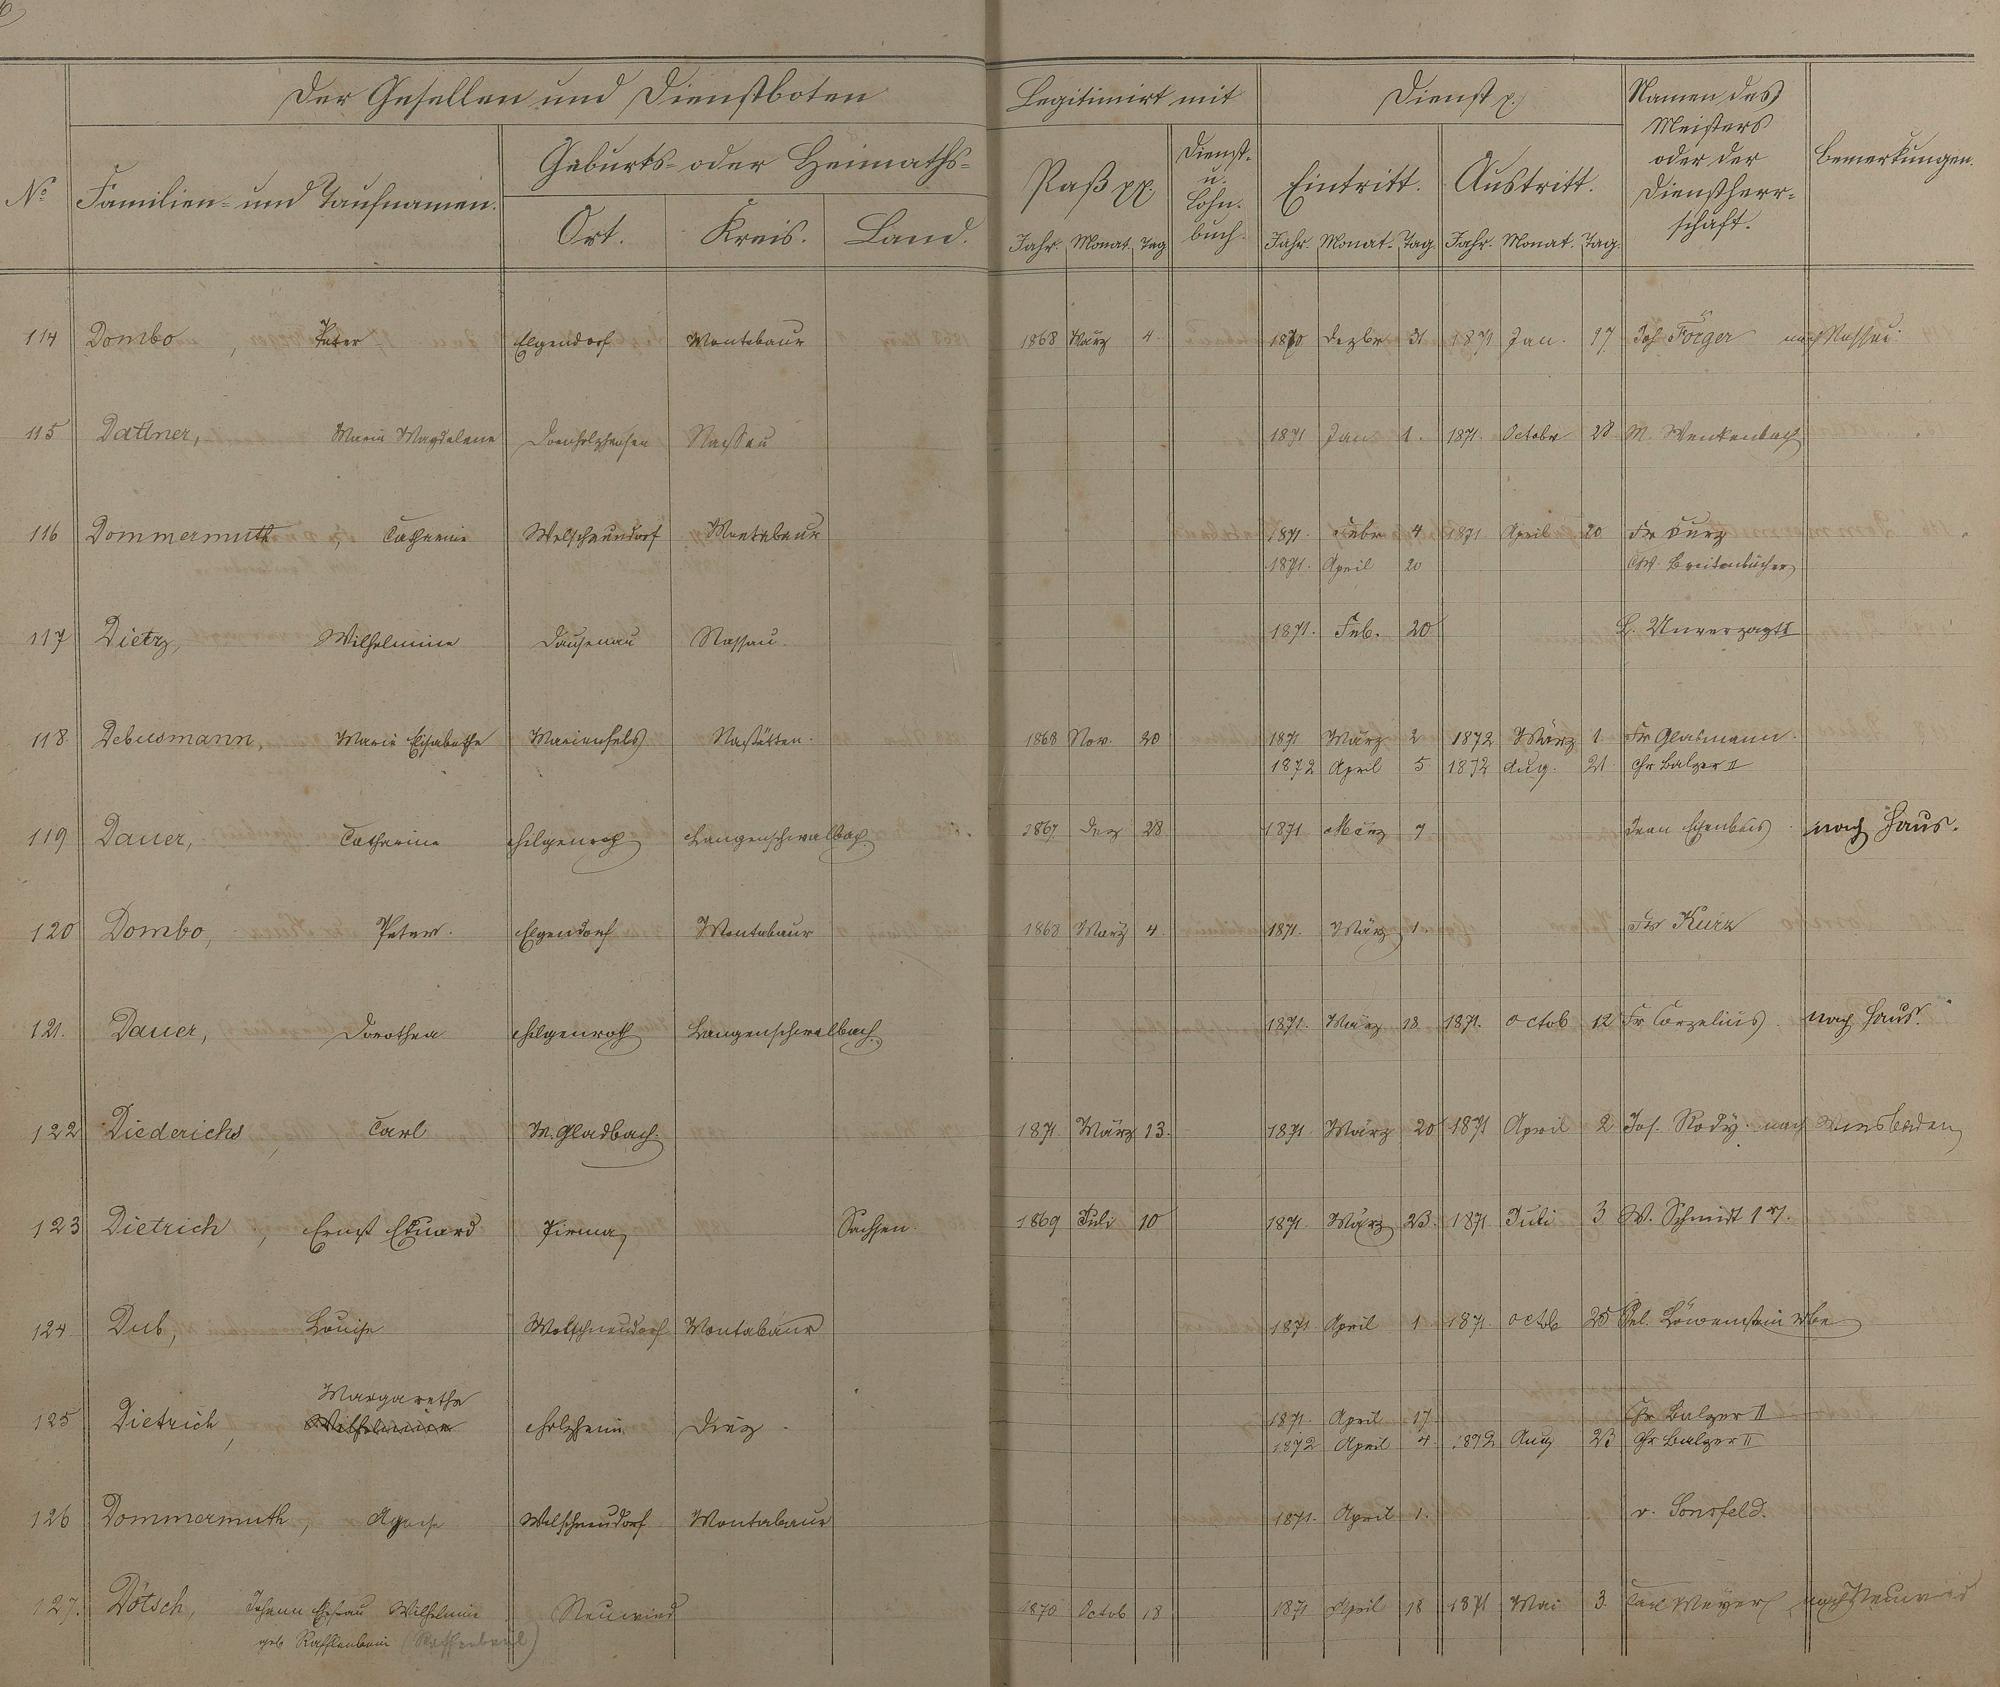 Der Gesellen und Dienstboten
Legitimirt mit
Dienst p.
Namen des Meisters oder der Dienstherrschaft.
Bemerkungen.
No
Familien- und Taufnamen.
Geburts- oder Heimaths-
Ort. Kreis. Land.
Paß pp.
Jahr. Monat. Tag
Dienst- u. Lohn- buch.
Eintritt. Austritt.
Jahr. Monat. Tag. Jahr. Monat. Tag.
114 Dombo, Peter Elgendorf Montabaur 1868 März 4. 1870 Dezbr 31 1871 Jan. 17 Joh Förger nach Nassau.
115 Dattner, Maria Magdalene Dornholzhausen Nassau 1871 Jan 1. 1871. Octobr 28 M. Wenkenbach
116 Dommermuth, Catharine Welschneudorf Montabaur 1871. Febr 4 1871 April 20 Fr Kurz
1871. April 20 Chr. Breitenbücher
117 Dietz, Wilhelmine Dausenau Nassau. 1871. Feb. 20 L. Unverzagt I
118. Debusmann, Marie Elisabethe Marienfels Nastätten. 1868 Nov. 20 1871 März 2 1872 März 1 Fr Glasmann.
1872 April 5 1872 Aug. 21 Chr Balzer II
119 Dauer, Catharine Hilgenroth Langenschwalbach. 1867 Dez 28 1871 März 7 nach Haus.
120 Dombo, Peter. Elgendorf Montabaur 1868 März 4. 1871. März 1. Fr Kurz
121. Dauer, Dorothea Hilgenroth Langenschwalbach. 1871. März 18 1871. Octob 12 Fr Corzelius. nach Haus.
122 Diederichs, Carl M. Gladbach. 1871 März 13. 1871. März 20 1871 April 2 Jos. Rody. nach Wiesbaden
123 Dietrich, Ernst Eduard Pirna Sachsen. 1869 Juli 10 1871. März 23. 1871 Juli 3 W. Schmidt 1r.
124 Dub, Louise Welschneudorf Montabaur 1871 April 1 1871. Octob 25 Löwenstein Wbe
125 Dietrich, Margarethe
Wilhelmine Holzheim Diez 1871. April 17. Chr Balzer II
1872 April 4. 1872 Aug 23 Chr Balzer II
126 Dommermuth, Agnese Welschneudorf Montabaur 1871. April 1. v. Sonsfeld.
127. Dötsch, Johann Ehefrau Wilhelmine Neuwied 1870 Octob 18 1871 April 18 1871 Mai 3. Carl Meyer nach Neuwied
geb